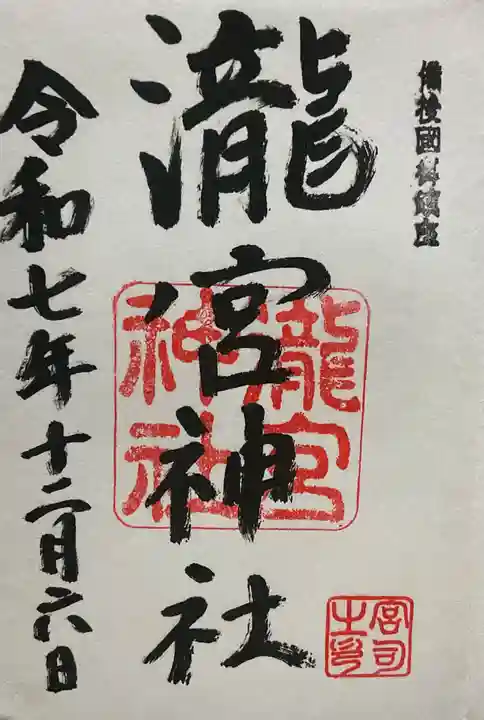 備後國
瀧宮神社
瀧宮神社
宮司之印
令和七年十二月六日